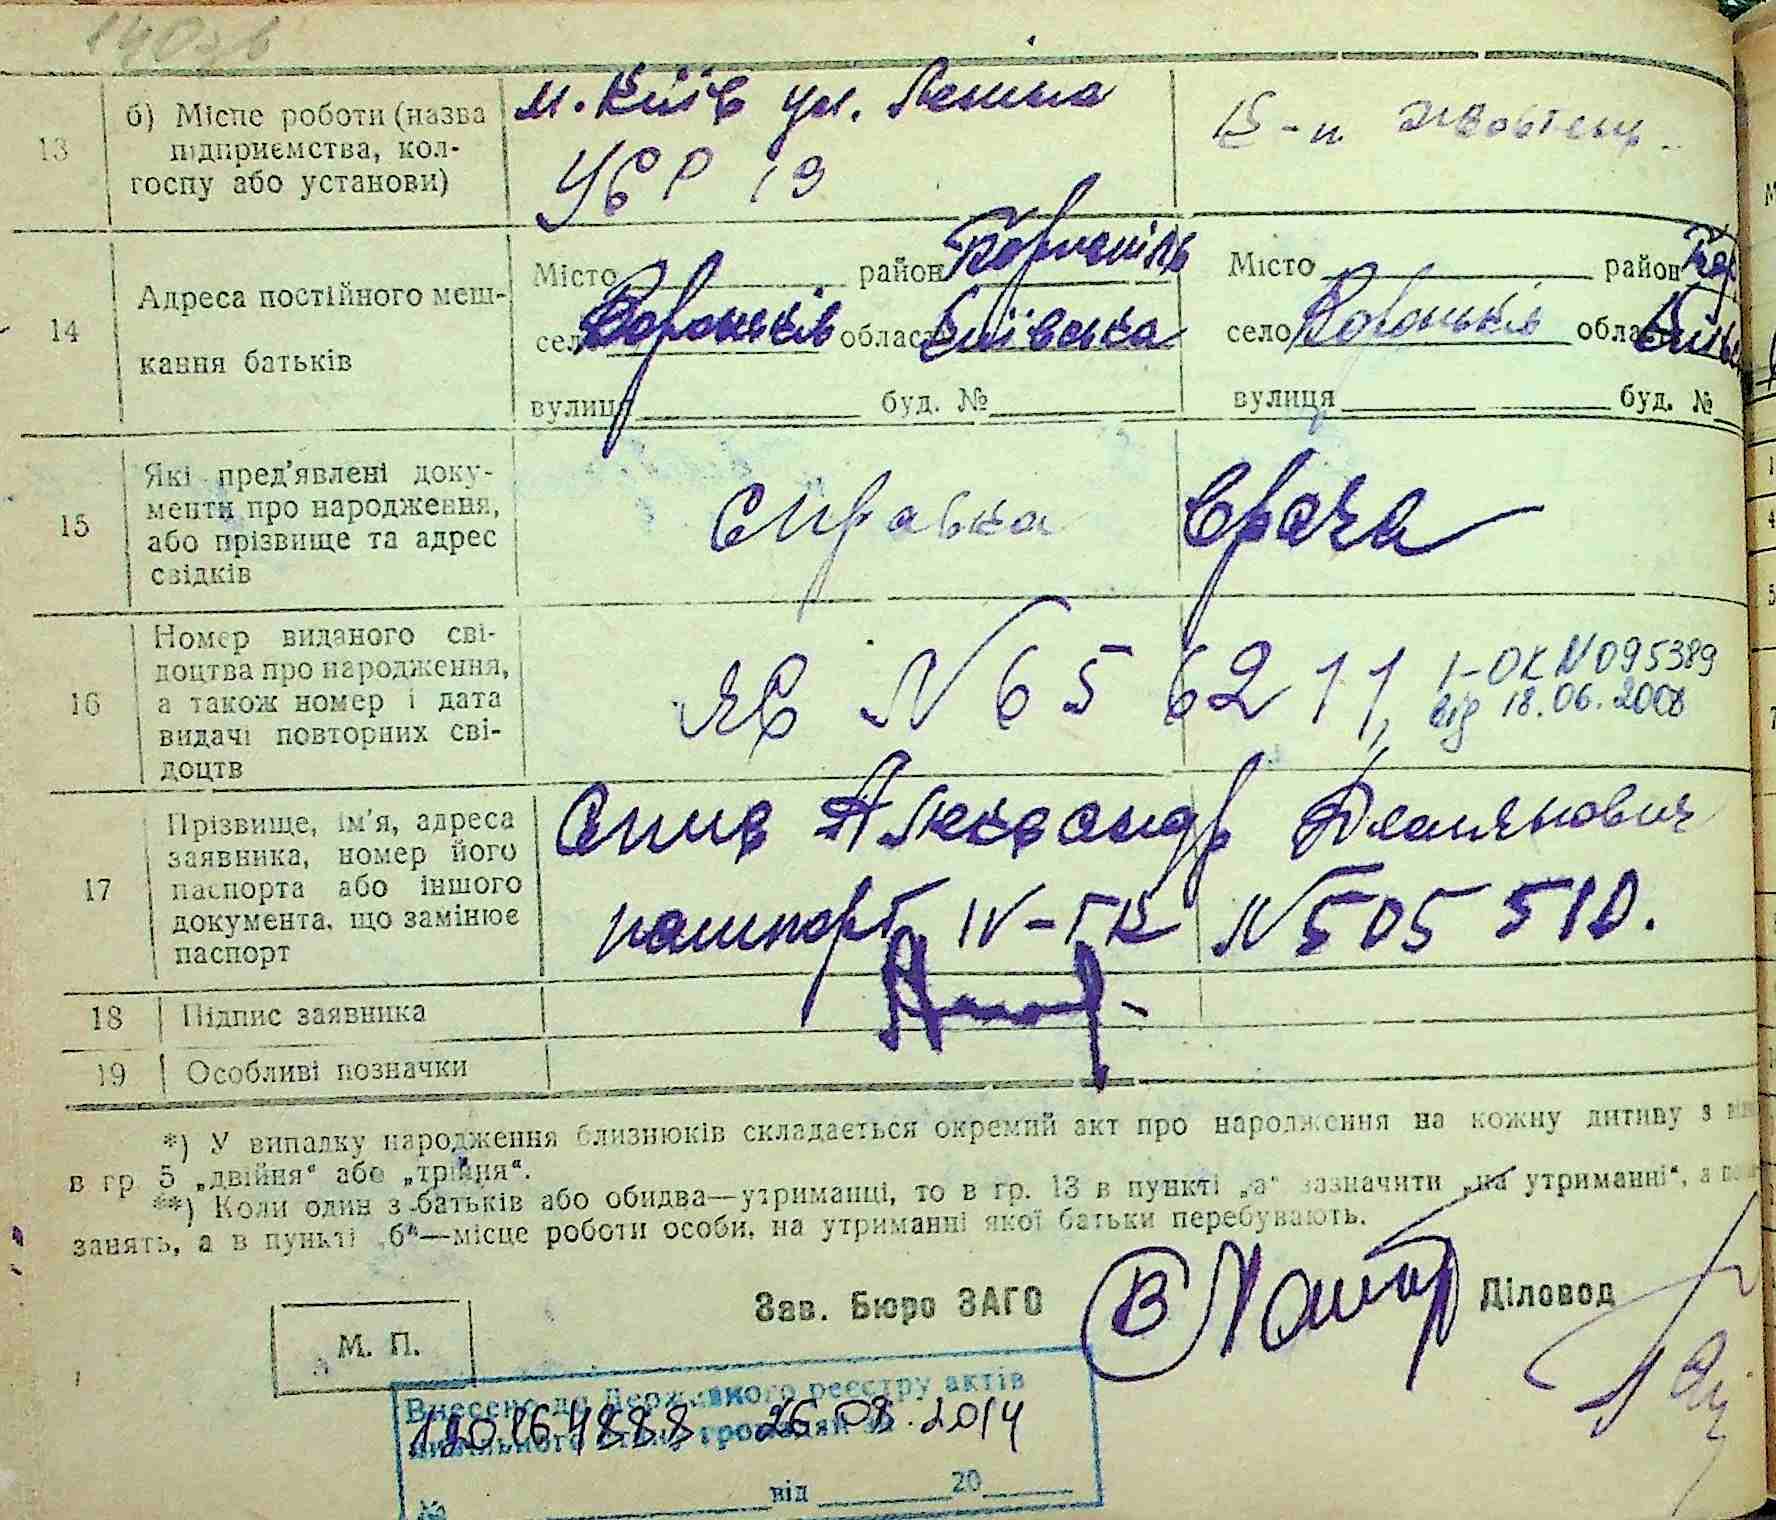 140зв
13
б) Місце роботи (назва
підприємства, кол-
госпу або установи)
м. Київ ул. Леніна
УБР 19
К-п Жовтень
14
Адреса постійного меш-
кання батьків
Місто район Бориспіль
село Вороньків область Київська
вулиця буд. №
Місто район Бор
село Вороньків область Київ
вулиця буд. №
15
Які пред'явлені доку-
менти про народження,
або прізвище та адрес
свідків
Справка врача
16
Номер виданого сві-
доцтва про народження,
а також номер і дата
видачі повторних сві-
доцтв
ЯЄ N 656211,
1-ОК N 095389
від 18.06.2008
17
Прізвище, ім'я, адреса
заявника, номер його
паспорта або іншого
документа, що замінює
паспорт
Александр Демянович
пашпорт IV-ГК N 505510.
18
Підпис заявника
19
Особливі позначки
*) У випадку народження близнюків складається окремий акт про народження на кожну дитину з
в гр 5 „двійня“ або „трійня“.
**) Коли один з батьків або обидва—утриманці, то в гр. 13 в пункті „а“ зазначити „на утриманні“, а
занять, а в пункті „б“—місце роботи особи, на утриманні якої батьки перебувають.
Зав. Бюро ЗАГС
Діловод
М. П.
Внесено до Державного реєстру актів
цивільного стану громадян за
26.08.2014
№ від 20